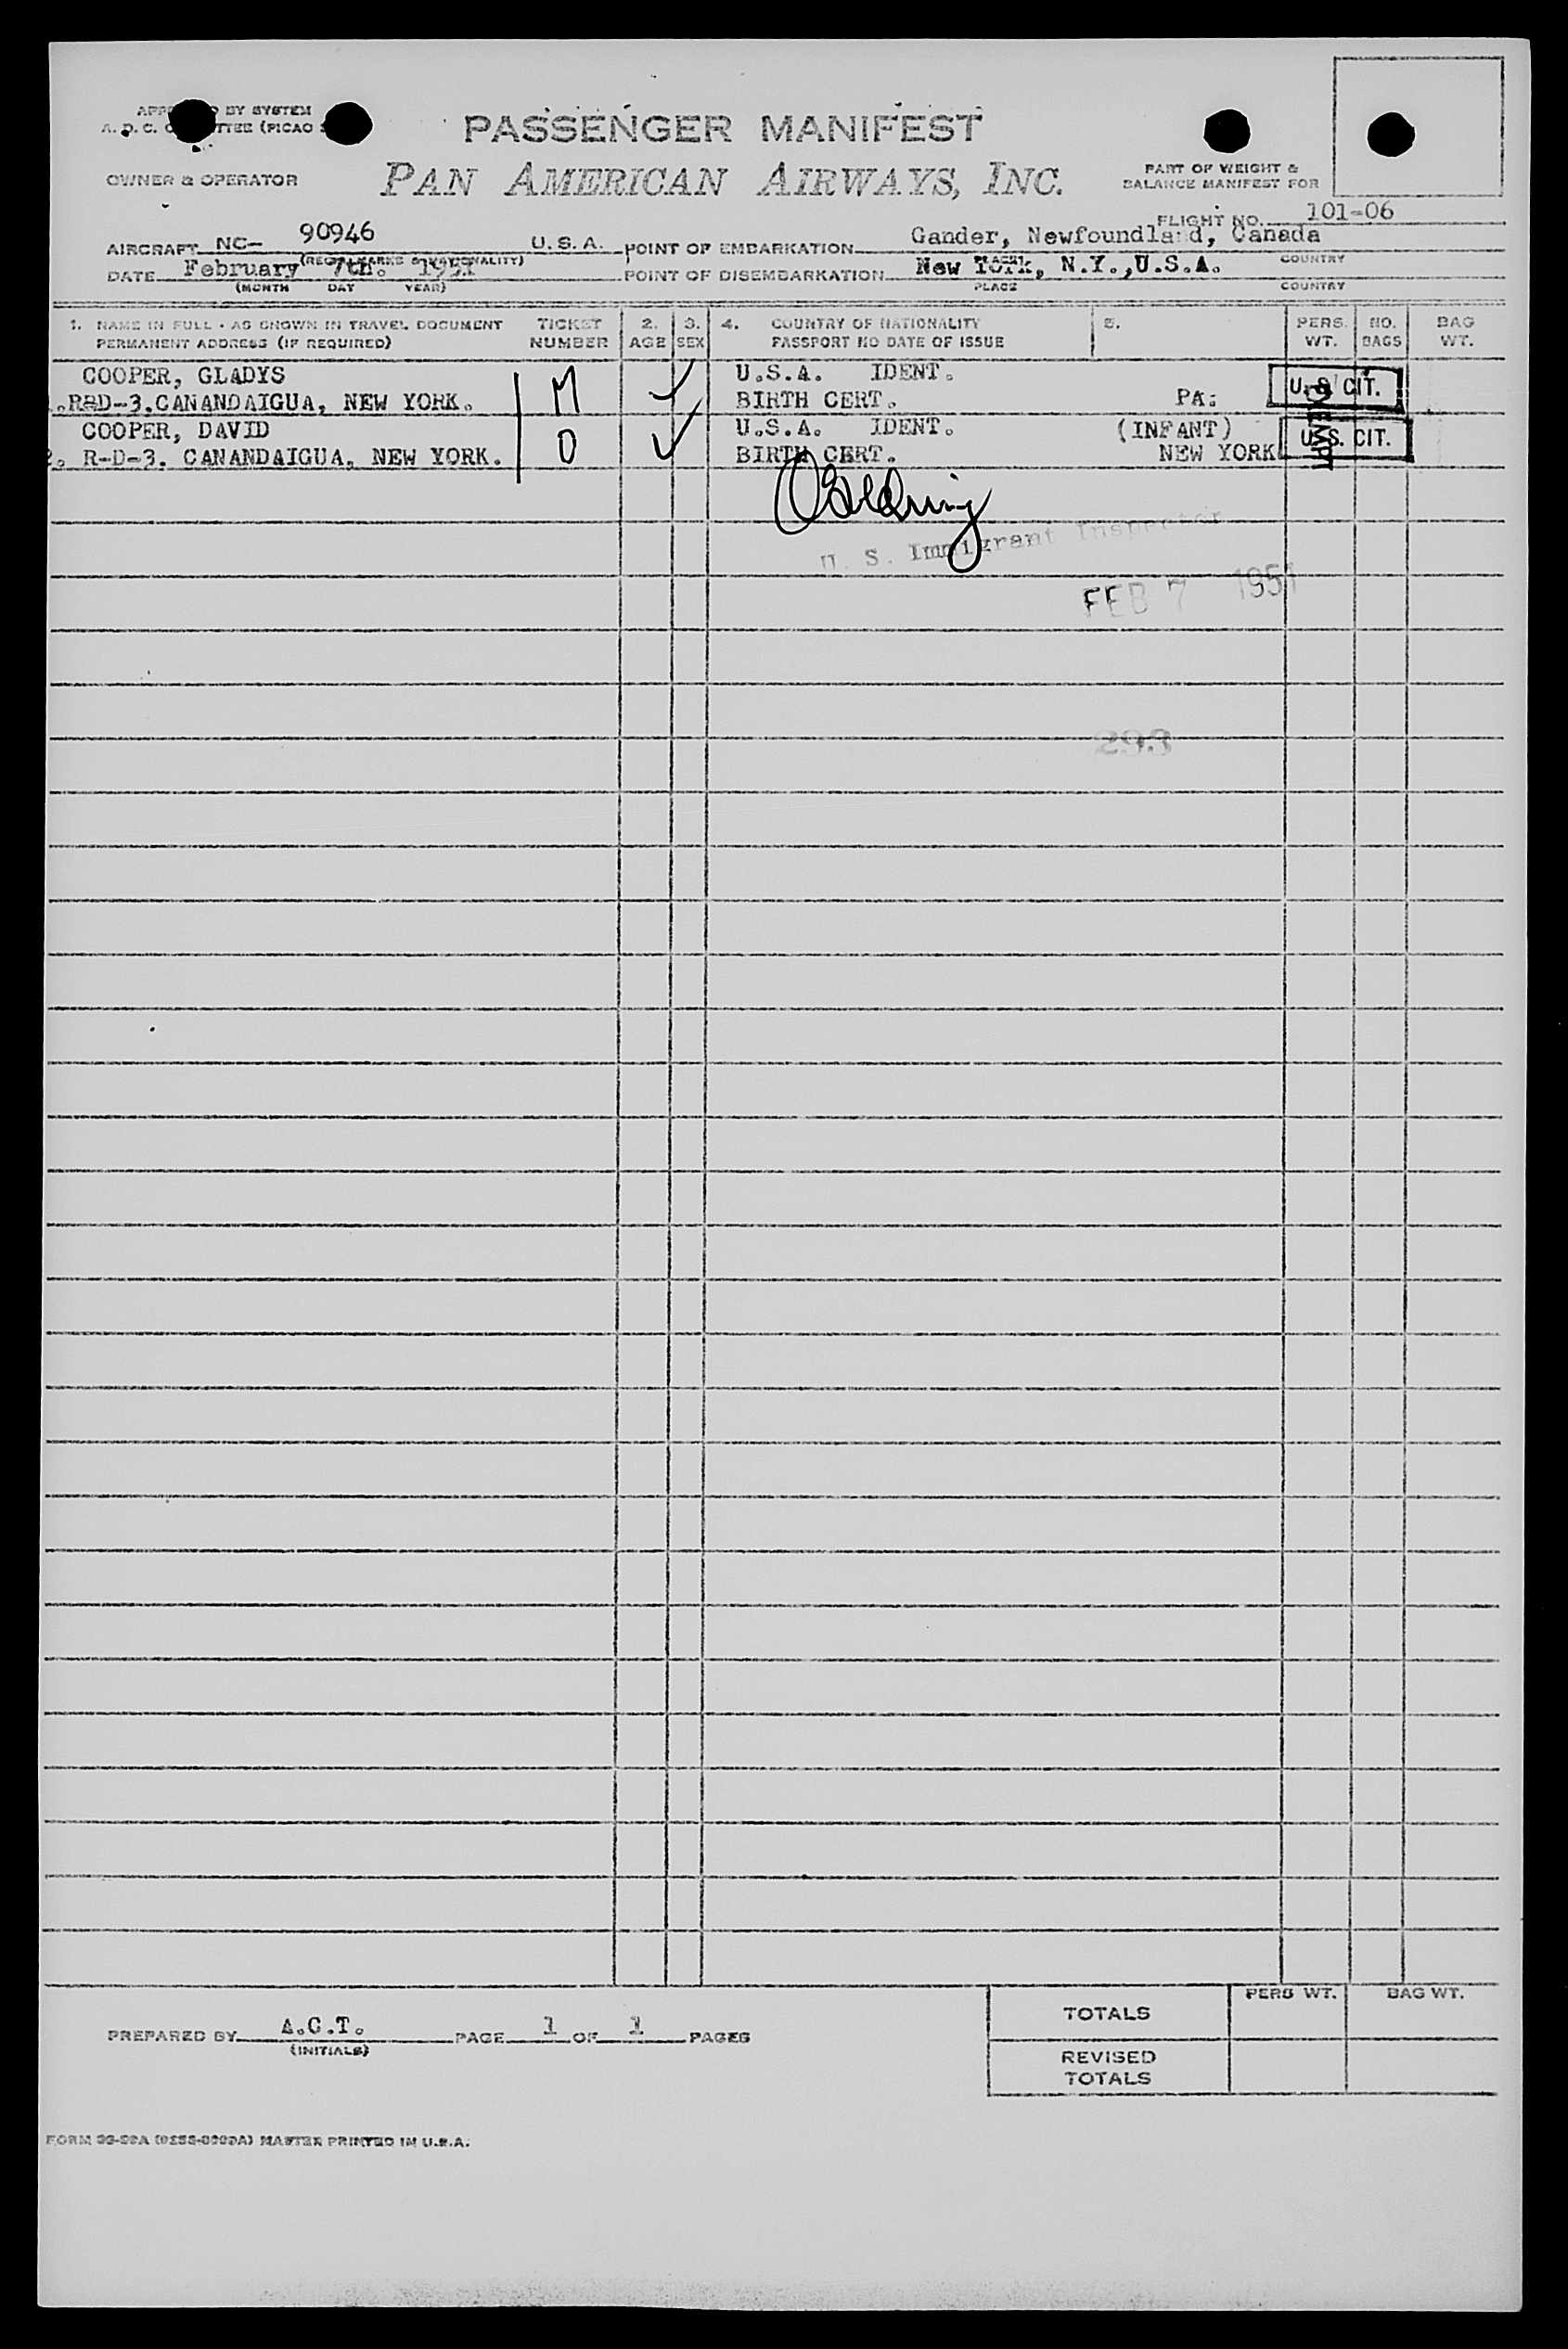 BY SYSTEM
A. D. C. (PICAO
PASSENGER MANIFEST
OWNER & OPERATOR
PAN AMERICAN AIRWAYS, INC.
PART OF WEIGHT &
BALANCE MANIFEST FOR
FLIGHT NO. 101-06
AIRCRAFT NC- 90946 U.S.A. POINT OF EMBARKATION Gander, Newfoundland, Canada
(REG. MARKS & NATIONALITY) PLACE COUNTRY
DATE February 7th. 1951 POINT OF DISEMBARKATION New York, N.Y.,U.S.A.
(MONTH DAY YEAR) PLACE COUNTRY
1. NAME IN FULL - AS SHOWN IN TRAVEL DOCUMENT TICKET 2. 3. 4. COUNTRY OF NATIONALITY 5. PERS. NO. BAG
PERMANENT ADDRESS (IF REQUIRED) NUMBER AGE SEX PASSPORT NO DATE OF ISSUE WT. BAGS WT.
COOPER, GLADYS M U.S.A. IDENT.
.R&D-3.CANANDAIGUA, NEW YORK. BIRTH CERT. PA. U.S. CIT.
COOPER, DAVID O U.S.A. IDENT. (INFANT) EXEMPT
2. R-D-3. CANANDAIGUA, NEW YORK. BIRTH CERT. NEW YORK U.S. CIT.
U. S. Immigrant Inspector
FEB 7 1951
293
PERS WT. BAG WT.
TOTALS
PREPARED BY A.C.T. PAGE 1 OF 1 PAGES
(INITIALS)
REVISED
TOTALS
MASTER PRINTED IN U.S.A.